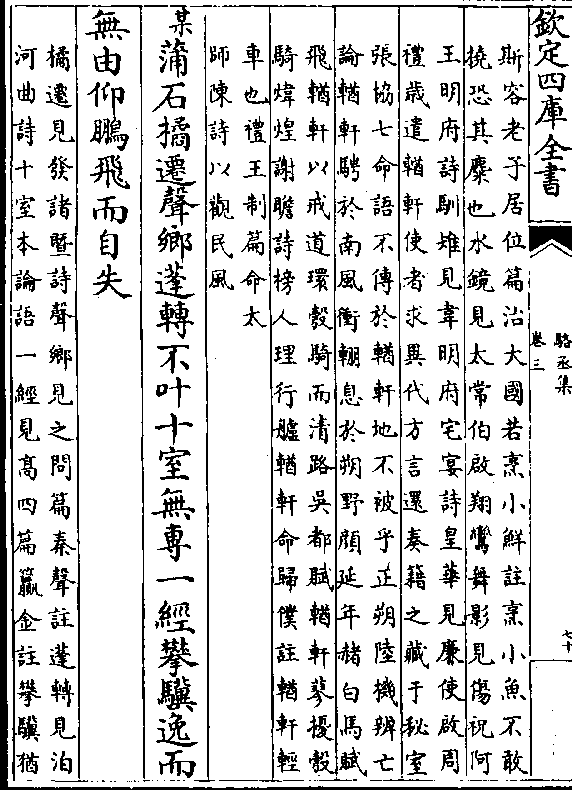 欽定四庫全書
駱丞集
卷三
七十
斯容老子居位篇治大國若烹小鮮註烹小魚不敢
撓恐其糜也水鏡見太常伯啟翔鸞舞影見傷祝阿
王明府詩馴雉見韋明府宅宴詩皇華見廉使啟周
禮歲遣輶軒使者求異代方言還奏籍之藏于秘室
張協七命語不傳於輶軒地不被乎正朔陸機辨亡
論輶軒騁於南風衝輣息於朔野顔延年赭白馬賦
飛輶軒以戒道環彀騎而清路吳都賦輶軒蓼擾彀
騎煒煌謝瞻詩榜人理行艫輶軒命歸僕註輶軒輕
車也禮王制篇命太
師陳詩以觀民風
某蒲石橘遷聲鄉蓬轉不叶十室無專一經攀驥逸而
無由仰鵬飛而自失
橘遷見發諸暨詩聲鄉見之問篇秦聲註蓬轉見泊
河曲詩十室本論語一經見髙四篇籝金註攀驥猶